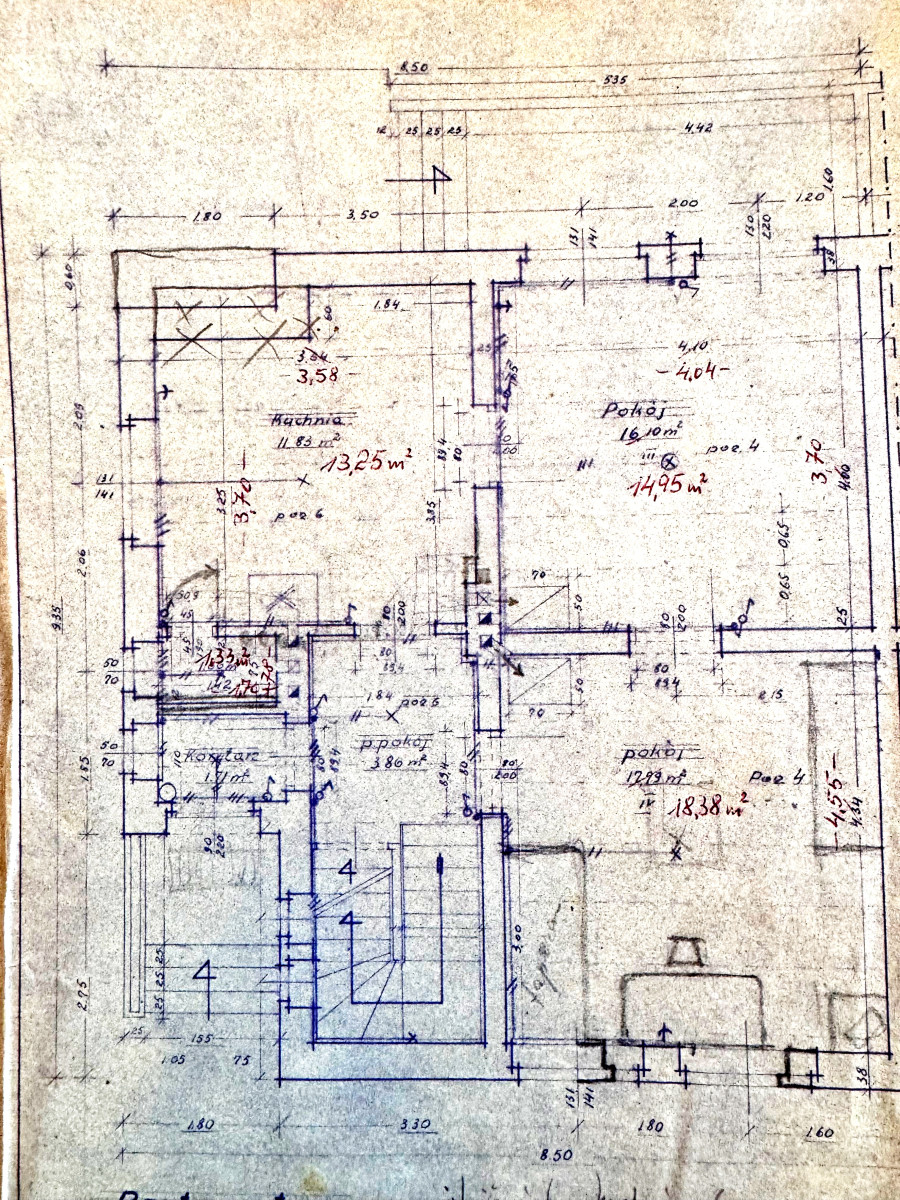 8.50
535
12 25 25 25
4.42
1.60
1.80
3.50
2.00
1.20
151
141
150
220
38
0.60
1.84
60
25
4.10
3.64
3,58
- 4,04 -
Kuchnia
11.83 m²
13,25 m²
Pokój
16,10 m²
poz 4
III
14,95 m²
3,70
4.00
2.05
131
141
3.25
3,70
poz 6
3.85
89,4
80
2.06
9.35
0,65
0,65
70
50
80
200
80
200
25
45
1,33 m²
50
70
80
89.4
80
89.4
2.15
1.84
poz 5
70
50
p.pokój
3.86 m²
Korytarz
1.71 m²
110
50
70
1.85
80
89,4
89,4
80
80
200
pokój
17.93 m²
Poz 4
IV
18,38 m²
4,55
4.34
90
220
3,00
25 25 25
2.75
25
155
1.05
75
131
141
38
1.80
3.30
180
1.60
8.50